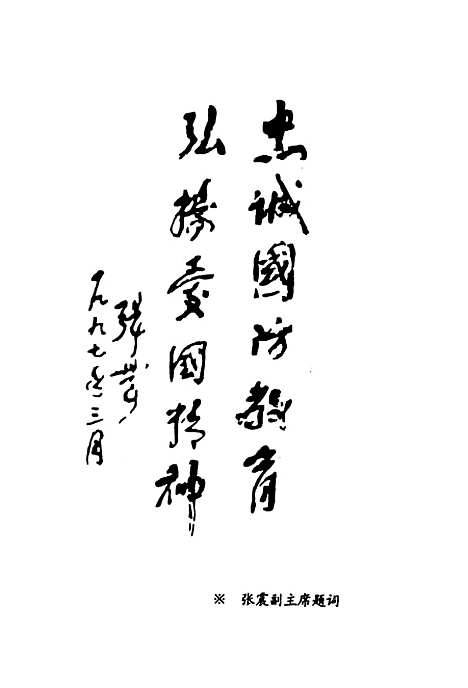 忠诚國防教育
弘揚爱国精神
张震
一九九七年三月
※ 张震副主席题词